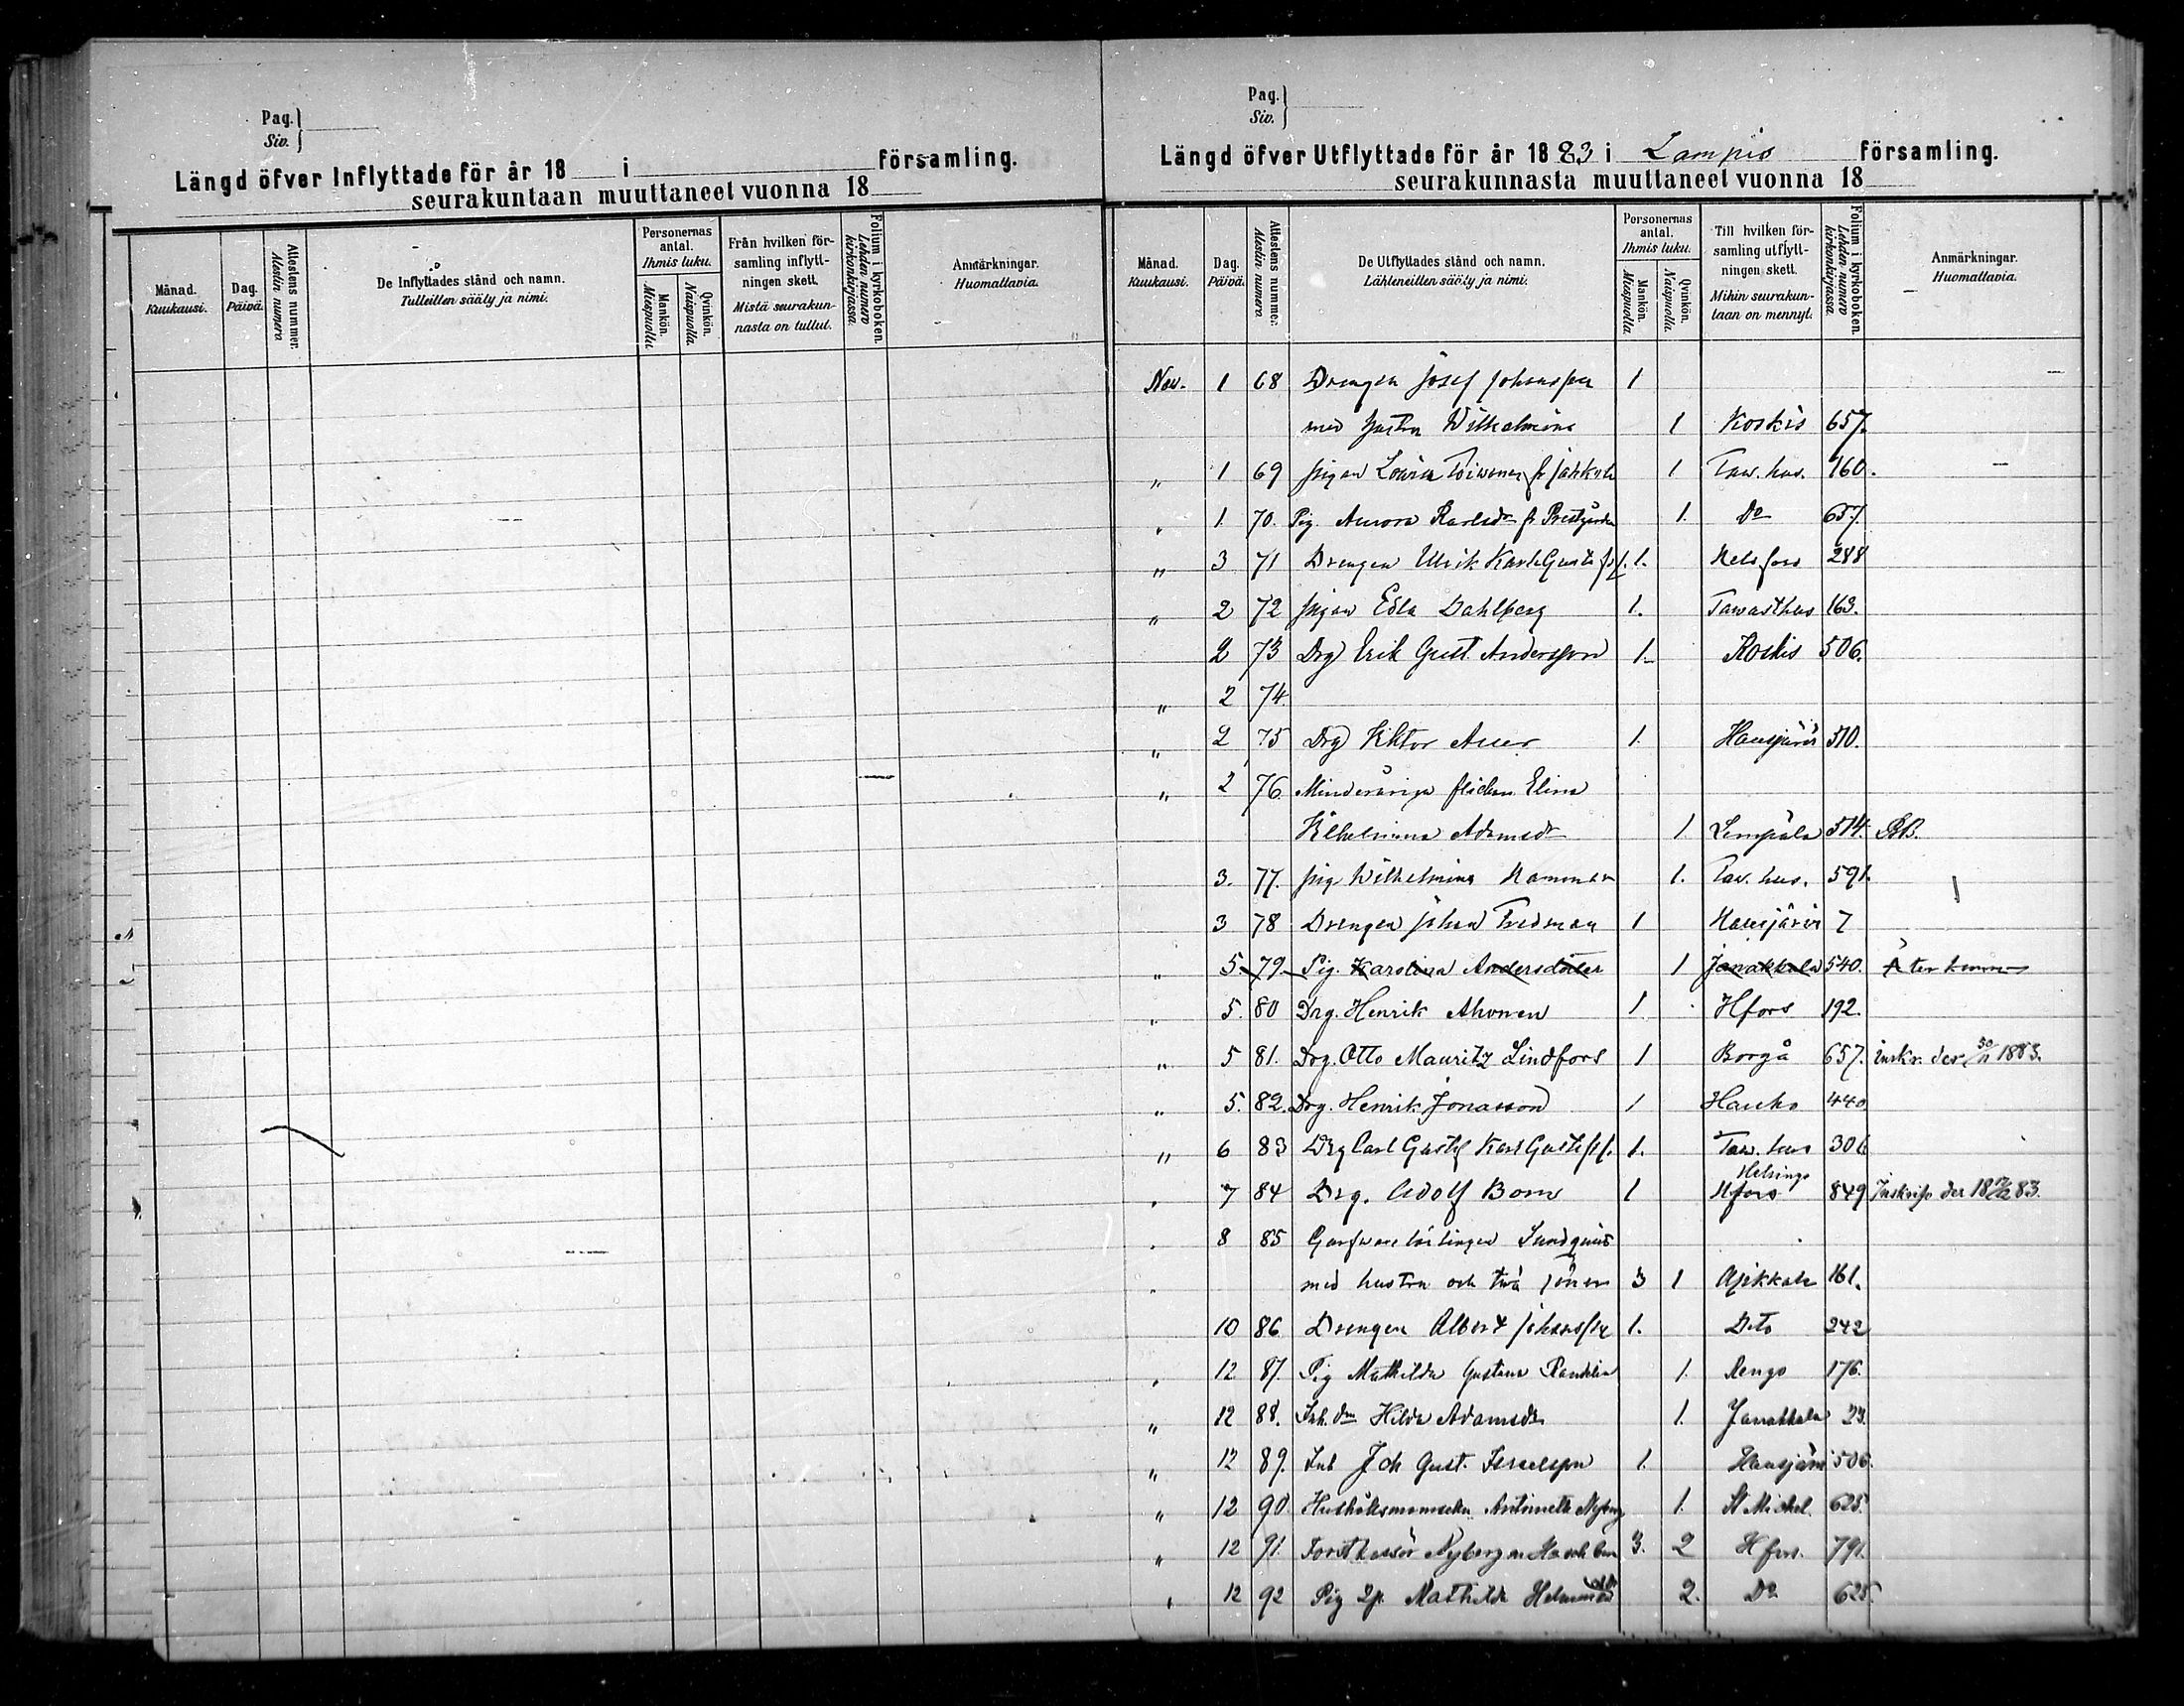 Pag.
Siv.
Längd öfver Inflyttade för år 18 i församling.
seurakuntaan muuttaneet vuonna 18
Månad. Kuukausi.
Dag. Päivä.
Attestens nummer. Atestin numero
De Inflyttades stånd och namn.
Tulleitten sääty ja nimi.
Personernas antal. Ihmis luku.
Mankön. Miespuolia.
Qvinkön. Naispuolia.
Från hvilken för-
samling inflytt-
ningen skett.
Mistä seurakun-
nasta on tullut.
Folium i kyrkoboken. Lehden numero kirkonkirjassa.
Anmärkningar.
Huomattavia.
Pag.
Siv.
Längd öfver Utflyttade för år 1883 i Lampis församling.
seurakunnasta muuttaneet vuonna 18
Månad. Kuukausi.
Dag. Päivä.
Attestens nummer. Atestin numero
De Utflyttades stånd och namn.
Lähteneitten sääty ja nimi.
Personernas antal. Ihmis luku.
Mankön. Miespuolia.
Qvinkön. Naispuolia.
Till hvilken för-
samling utflytt-
ningen skett.
Mihin seurakun-
taan on mennyt.
Folium i kyrkoboken. Lehden numero kirkonkirjassa.
Anmärkningar.
Huomattavia.
Nov. 1 68 Drengen Josef Johansson 1
med hustru Wilhelmina 1 Koskis 657.
" 1 69 pigan Lovisa Toivonen fr Jahkola 1 Taw. hus. 160.
" 1. 70. Pig. Aurora Karlsdr fr Prestgården 1. Do 657
" 3 71 Drengen Ulrik Karl Gustafss. 1. Helsfors 288
" 2 72 pigan Edla Dahlberg 1. Tawasthus 163.
2 73 Drg Erik Gust Andersson 1. Koskis 506.
" 2 74
" 2 75 Drg Viktor Auer 1. Hausjärvi 510.
" 2 76 Minderåriga flickan Elina
Vilhelmina Adamsdr 1 Lempäla 514.
3. 77. pig Wilhelmina Hammar 1. Taw. hus. 591.
3 78 Drengen Johan Fredman 1 Hausjärvi 7
" 5 79 Pig. Karolina Andersdotter 1 Janakkala 540. Återkommen
" 5. 80 Drg. Henrik Ahonen 1. Hfors 192.
" 5 81. Drg. Otto Mauritz Lindfors 1 Borgå 657. inskr. der 30/11 1883.
" 5. 82. Drg. Henrik Jonasson 1 Hauho 440
" 6 83 Drg Carl Gustaf Karl Gustafss. 1. Taw. hus 306
" 7 84 Drg. Adolf Bom 1 Helsinge Hfors 849
" 8 85 Garfvare lärlingen Sundqvist
" med hustru och två söner 3 1 Asikkala 161.
10 86 Drengen Albert Johansson 1. Dito 242
" 12 87. Pig Mathilda Gustava Randelin 1. Rengo 176.
" 12 88. Inh. dr Hilda Adamsdr 1. Janakkala 23.
" 12 89. Inh Joh Gust. Israelsson 1. Hausjärvi 506.
" 12 90. Hushållsmamsellen Antoinette Nyberg 1. St Michel. 625.
" 12 91. Nyberg 3. 2 Hfors. 791.
" 12 92 Pig Mathilda 2. Do 625.